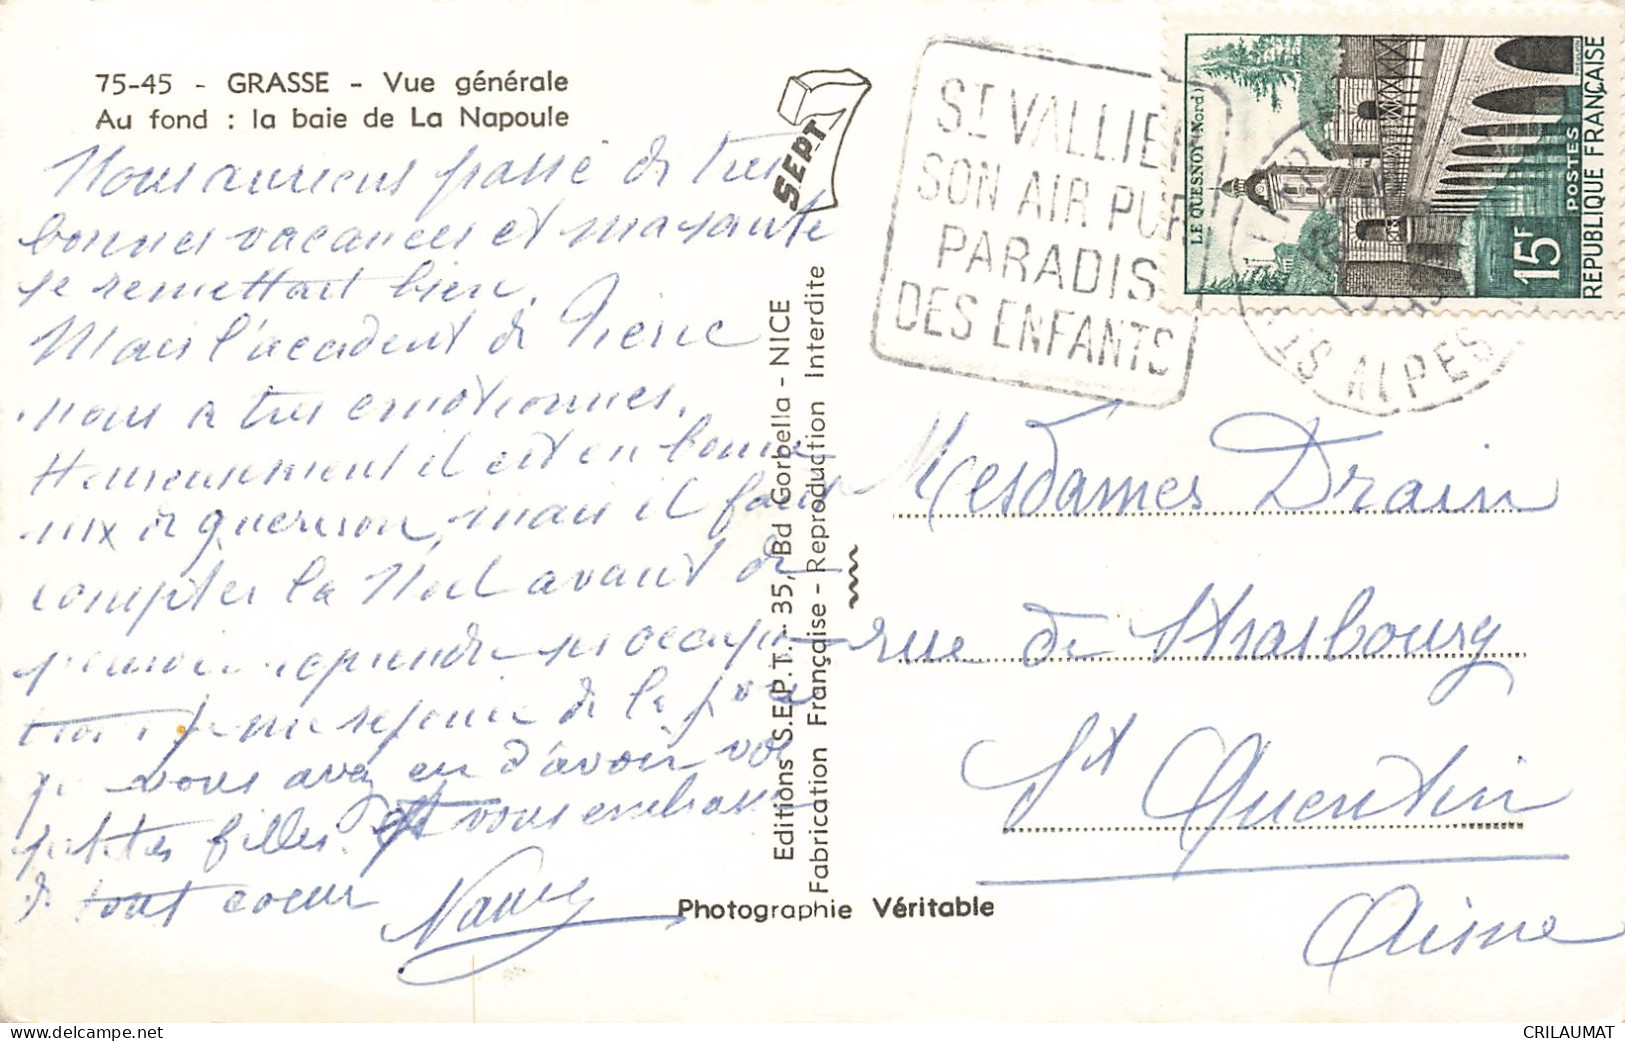 75-45 - GRASSE - Vue générale
Au fond : la baie de La Napoule
SEPT
Nous aurions passé de tres
bonnes vacances et ma santé
se remettait bien.
Mais l'accident de Pierre
nous a tres emotionnes.
Heureusement il est en bonne
de guerison, mais il faut
compter la Noel avant de
pouvoir reprendre ses occupa
tions. Je me rejouie de la joie
que vous avez eu d'avoir vos
petites filles. Et vous embrasse
de tout coeur
Nancy
Editions S.E.P.T. - 35, Bd Gorbella - NICE
Fabrication Française - Reproduction Interdite
Photographie Véritable
ST VALLIER
SON AIR PUR
PARADIS
DES ENFANTS
ALPES
LE QUESNOY (Nord)
15F
POSTES
REPUBLIQUE FRANÇAISE
Mesdames Drain
rue de Strasbourg
St Quentin
Aisne
CRILAUMAT